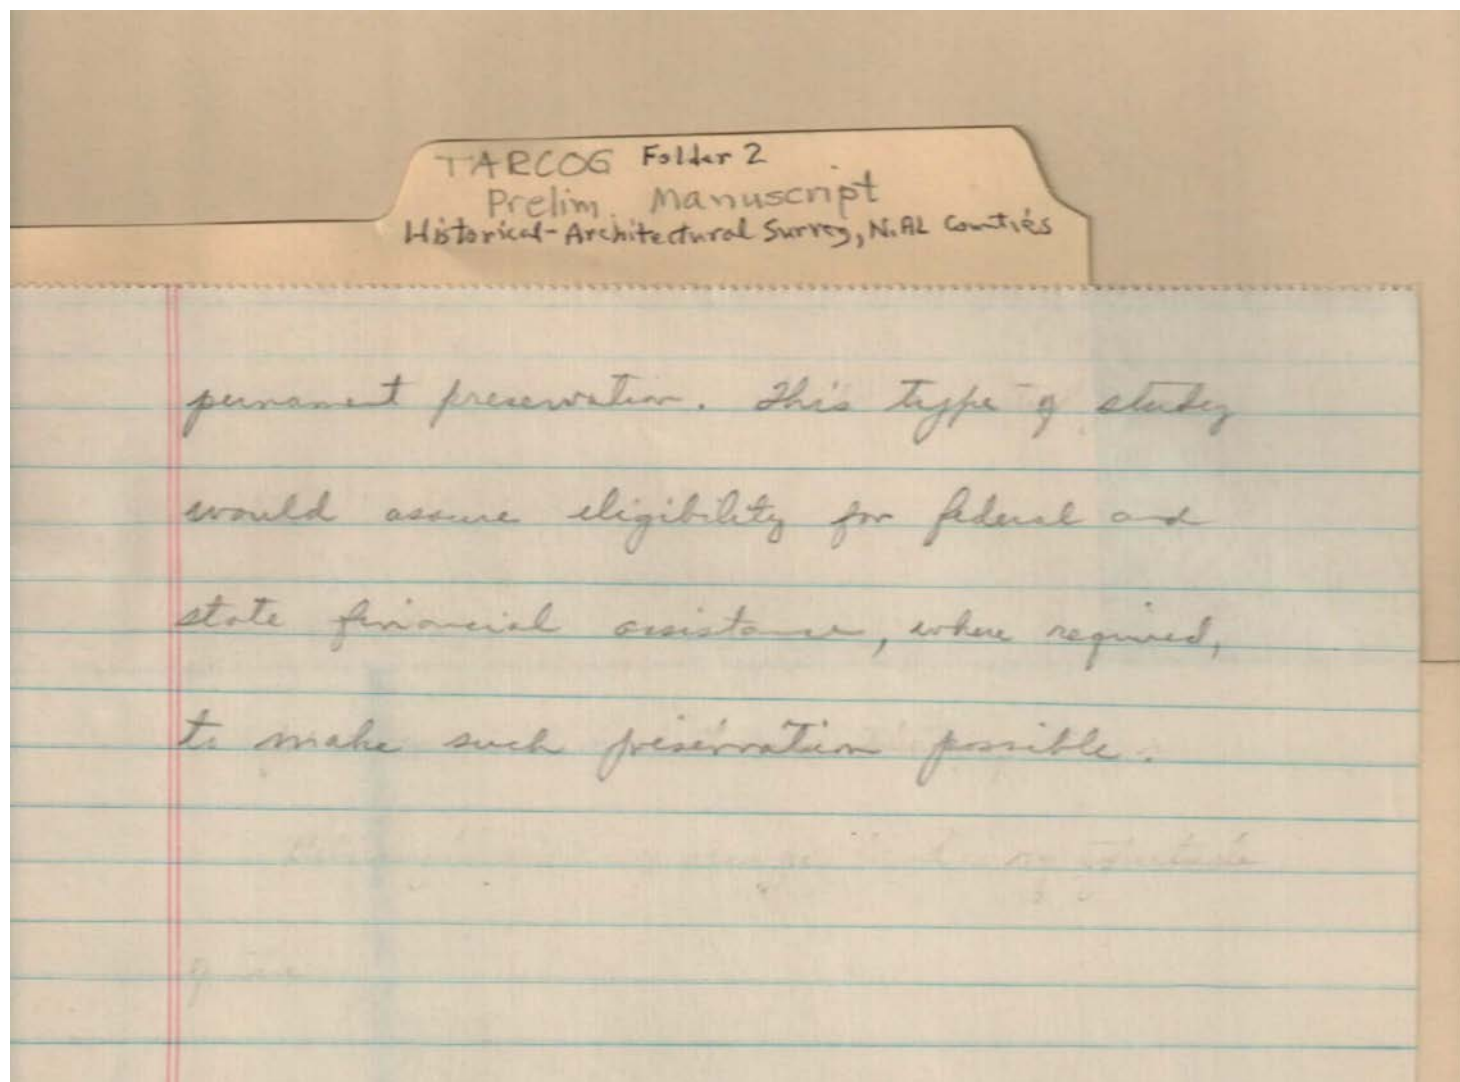 TARCOG Folder 2
Prelim. Manuscript
Historical-Architectural Survey, N. AL Counties
permanent preservation. This type of study
would assure eligibility for federal and
state financial assistance, where required,
to make such preservation possible.